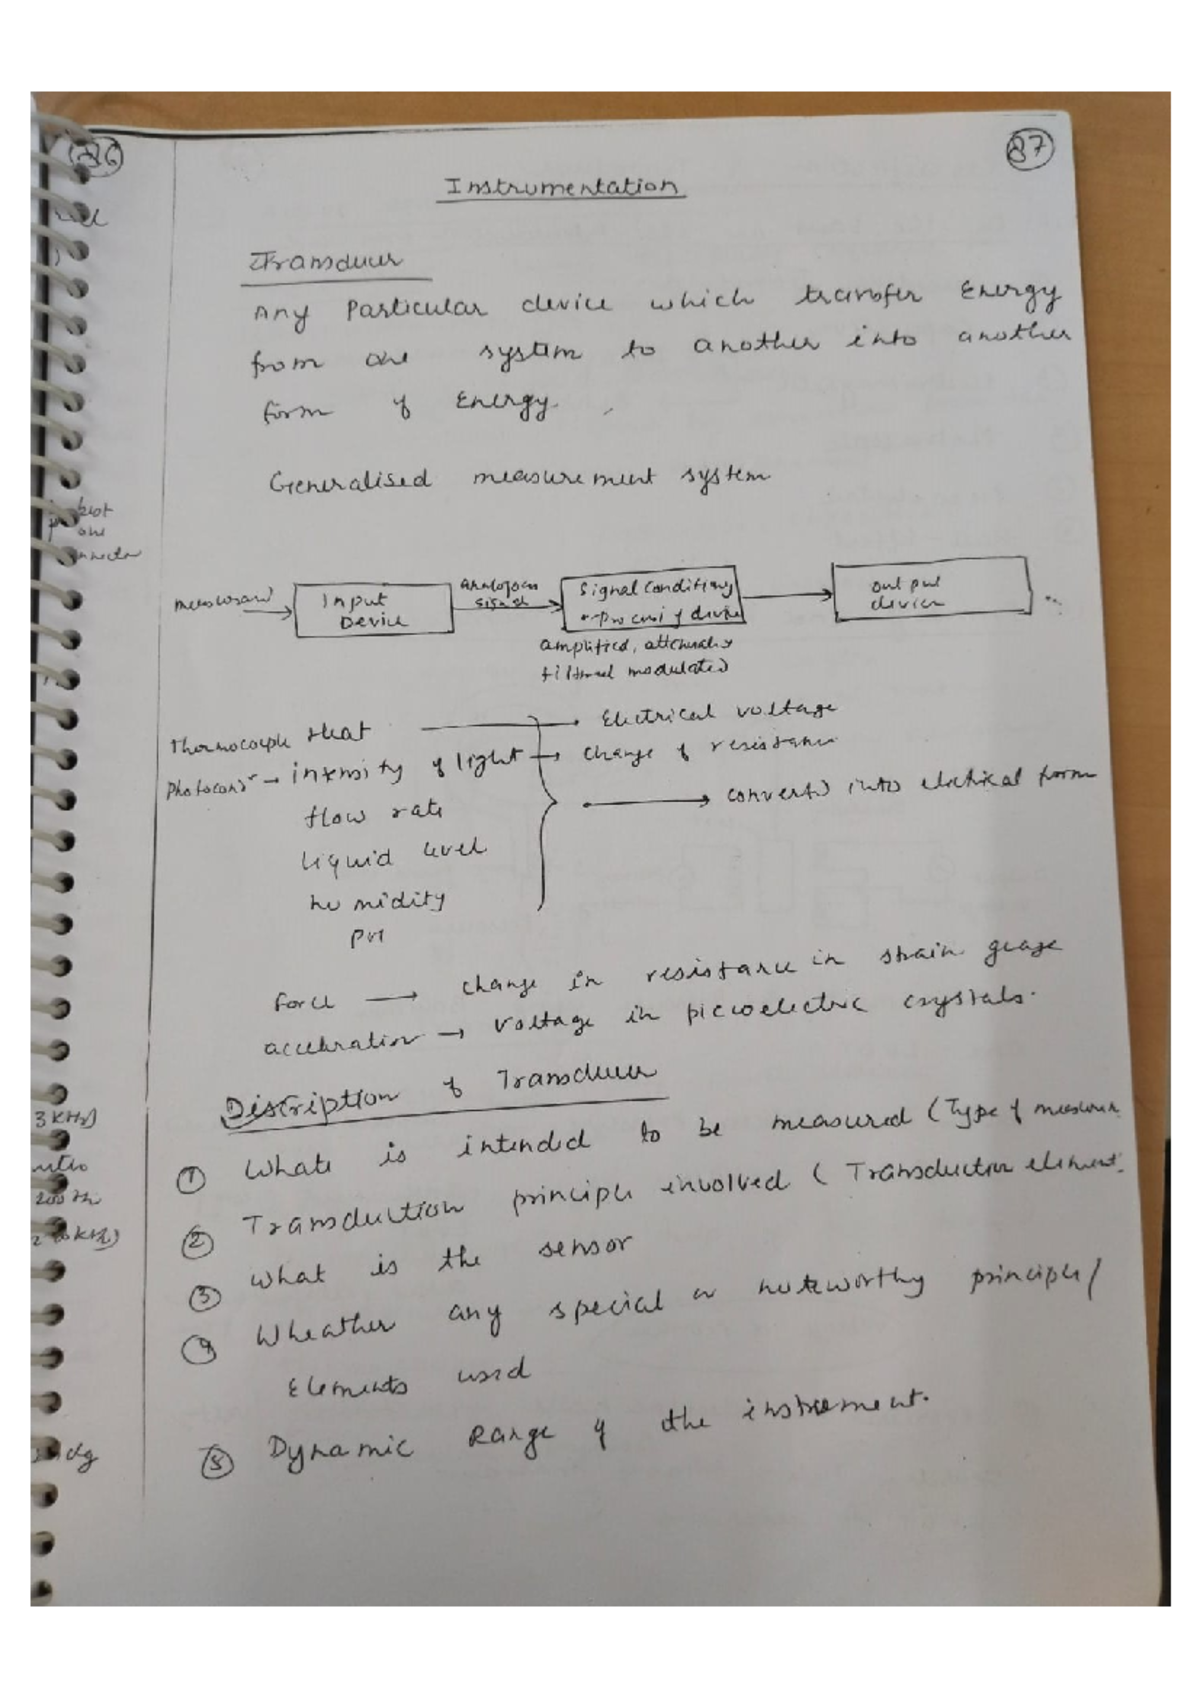 36
87
Instrumentation
Transducer
Any Particular device which transfer Energy
from one system to another into another
form of Energy.
Generalised measurement system
measurand
Input
Device
Analogous
signal
Signal Conditioning
or processing device
output
device
amplified, attenuated
filtered modulated
Thermocouple Heat → Electrical voltage
Photocond → intensity of light → change of resistance
flow rate → converted into electrical form
liquid level
humidity
PH
force → change in resistance in strain guage
accelration → voltage in piezoelectric crystals.
Discription of Transducer
① Whats is intended to be measured (Type of measuran
② Transduction principle involved ( Transduction element.
③ what is the sensor
④ Wheather any special or noteworthy principle/
Elements used
⑤ Dynamic Range of the instrument.
3 KHz)
dg